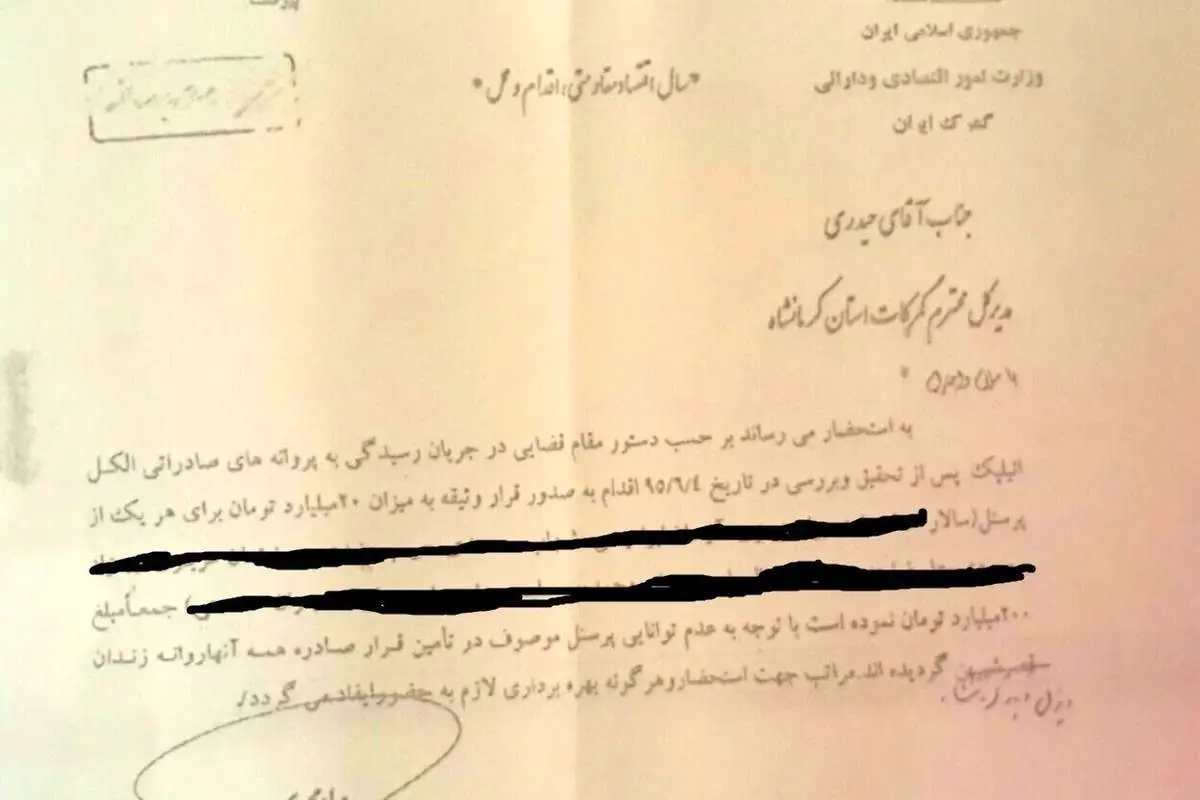 جمهوری اسلامی ایران
وزارت امور اقتصادی ودارائی
گمرک ایران
"سال اقتصاد مقاومتی، اقدام و عمل"
جناب آقای حیدری
مدیرکل محترم گمرکات استان کرمانشاه
با سلام و احترام
به استحضار می رساند بر حسب دستور مقام قضایی در جریان رسیدگی به پروانه های صادراتی الکل
اتیلیک پس از تحقیق وبررسی در تاریخ ۹۵/۶/۴ اقدام به صدور قرار وثیقه به میزان ۲۰میلیارد تومان برای هر یک از
پرسنل(سالار
جمعاًمبلغ
۲۰۰میلیارد تومان نموده است با توجه به عدم توانایی پرسنل موصوف در تأمین قرار صادره همه آنهاروانه زندان
گردیده اند.مراتب جهت استحضاروهرگونه بهره برداری لازم به حضورایفادمی گردد/.